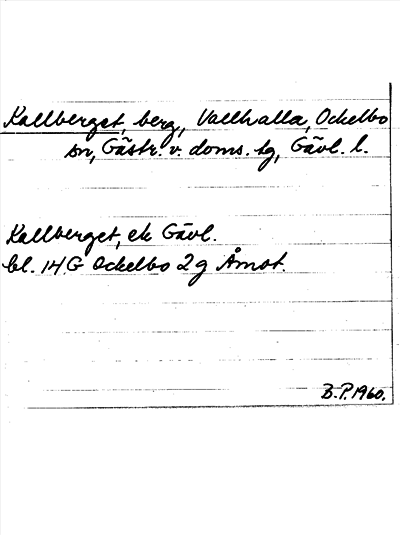 Kallberget, berg, Vallhalla, Ockelbo
sn, Gästr. v. doms. tg, Gävl. l.
Kallberget, ek Gävl.
bl. 14 G Ockelbo 2 g Åmot.
B.P. 1960.